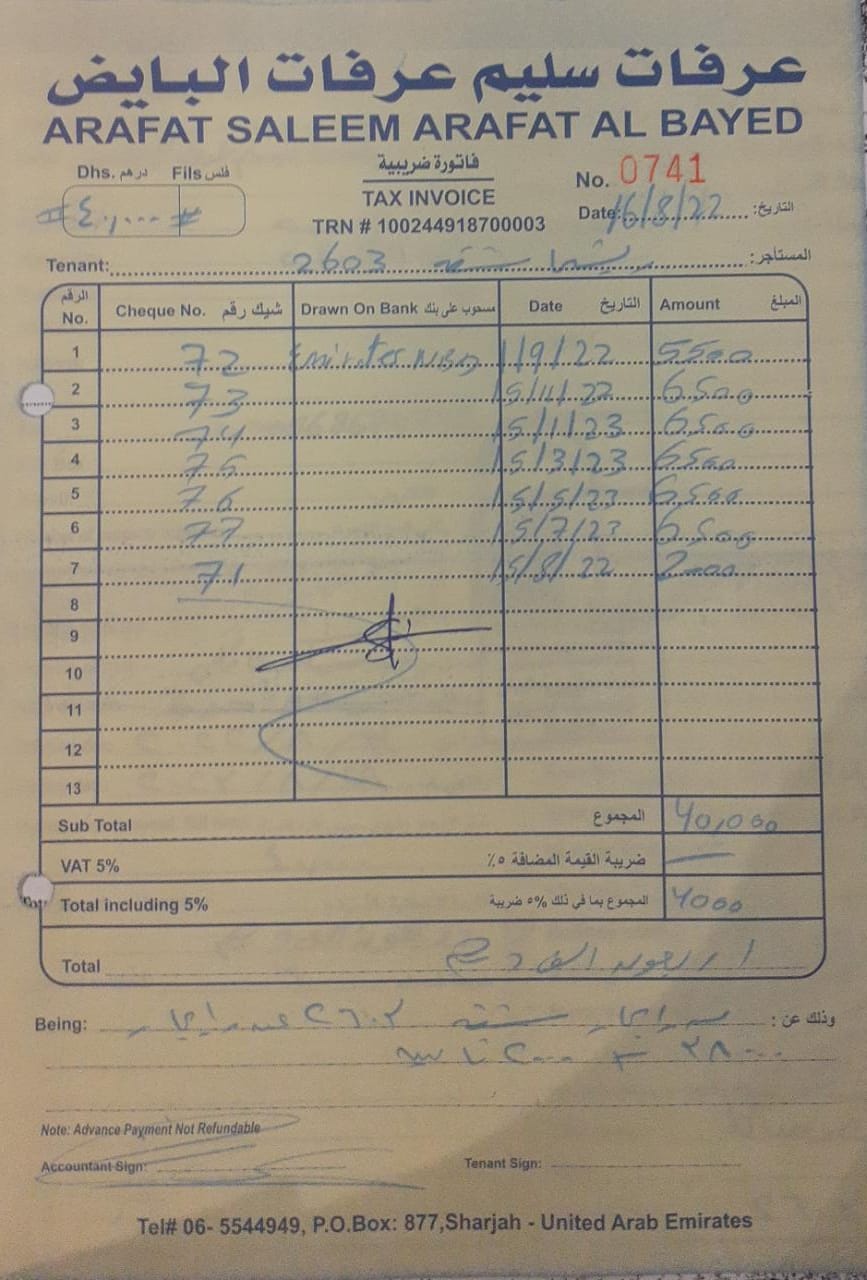 عرفات سليم عرفات البايض
ARAFAT SALEEM ARAFAT AL BAYED
Dhs. درهم Fils فلس
# ٤٠,٠٠٠ #
فاتورة ضريبية
TAX INVOICE
TRN # 100244918700003
No. 0741
Date: 16/8/22 التاريخ:
Tenant: 2603 شقة المستأجر:
الرقم No. Cheque No. شيك رقم Drawn On Bank مسحوب على بنك Date التاريخ Amount المبلغ
1 72 Emirates NBD 1/9/22 5500
2 73 15/11/22 6500
3 74 15/1/23 6500
4 75 15/3/23 6500
5 76 15/5/23 6500
6 77 15/7/23 6500
7 71 15/8/22 2000
8
9
10
11
12
13
Sub Total المجموع 40,000
VAT 5% ضريبة القيمة المضافة ٥٪ —
Total including 5% المجموع بما في ذلك 5% ضريبة 4000
Total اربعون الف درهم
Being: ايجار شقة ٢٦٠٣ عن ايجار وذلك عن:
٣٨٠٠٠ + ٢٠٠٠ تامين
Note: Advance Payment Not Refundable
Accountant Sign: Tenant Sign:
Tel# 06- 5544949, P.O.Box: 877,Sharjah - United Arab Emirates